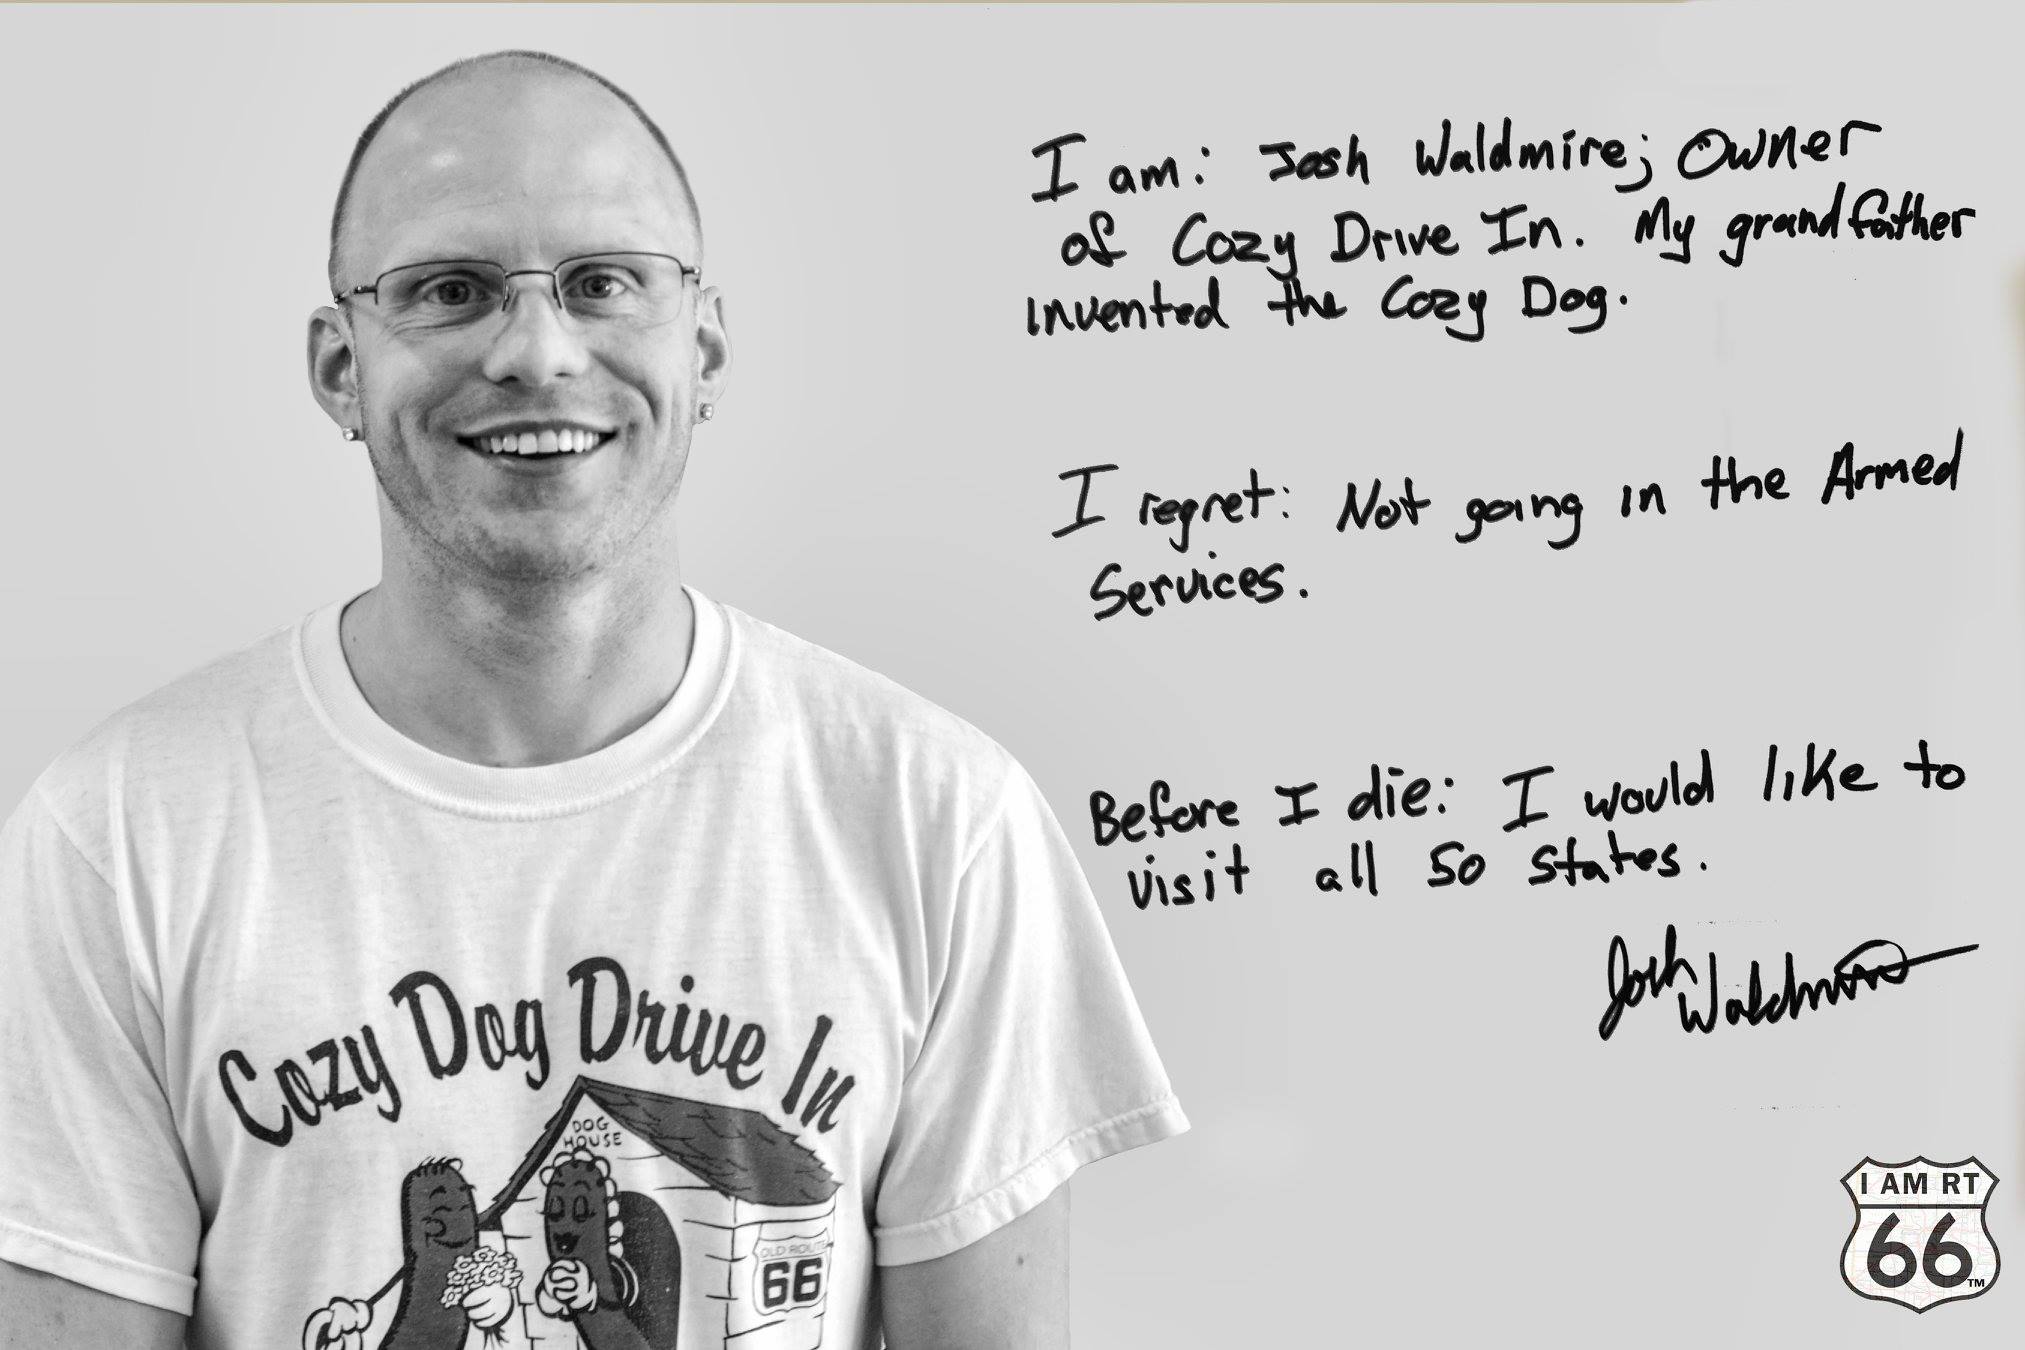 I am: Josh Waldmire; Owner
of Cozy Drive In. My grandfather
invented the Cozy Dog.
I regret: Not going in the Armed
Services.
Before I die: I would like to
visit all 50 states.
Josh
Waldmire
Cozy Dog Drive In
DOG
HOUSE
OLD ROUTE
66
I AM RT
66
TM